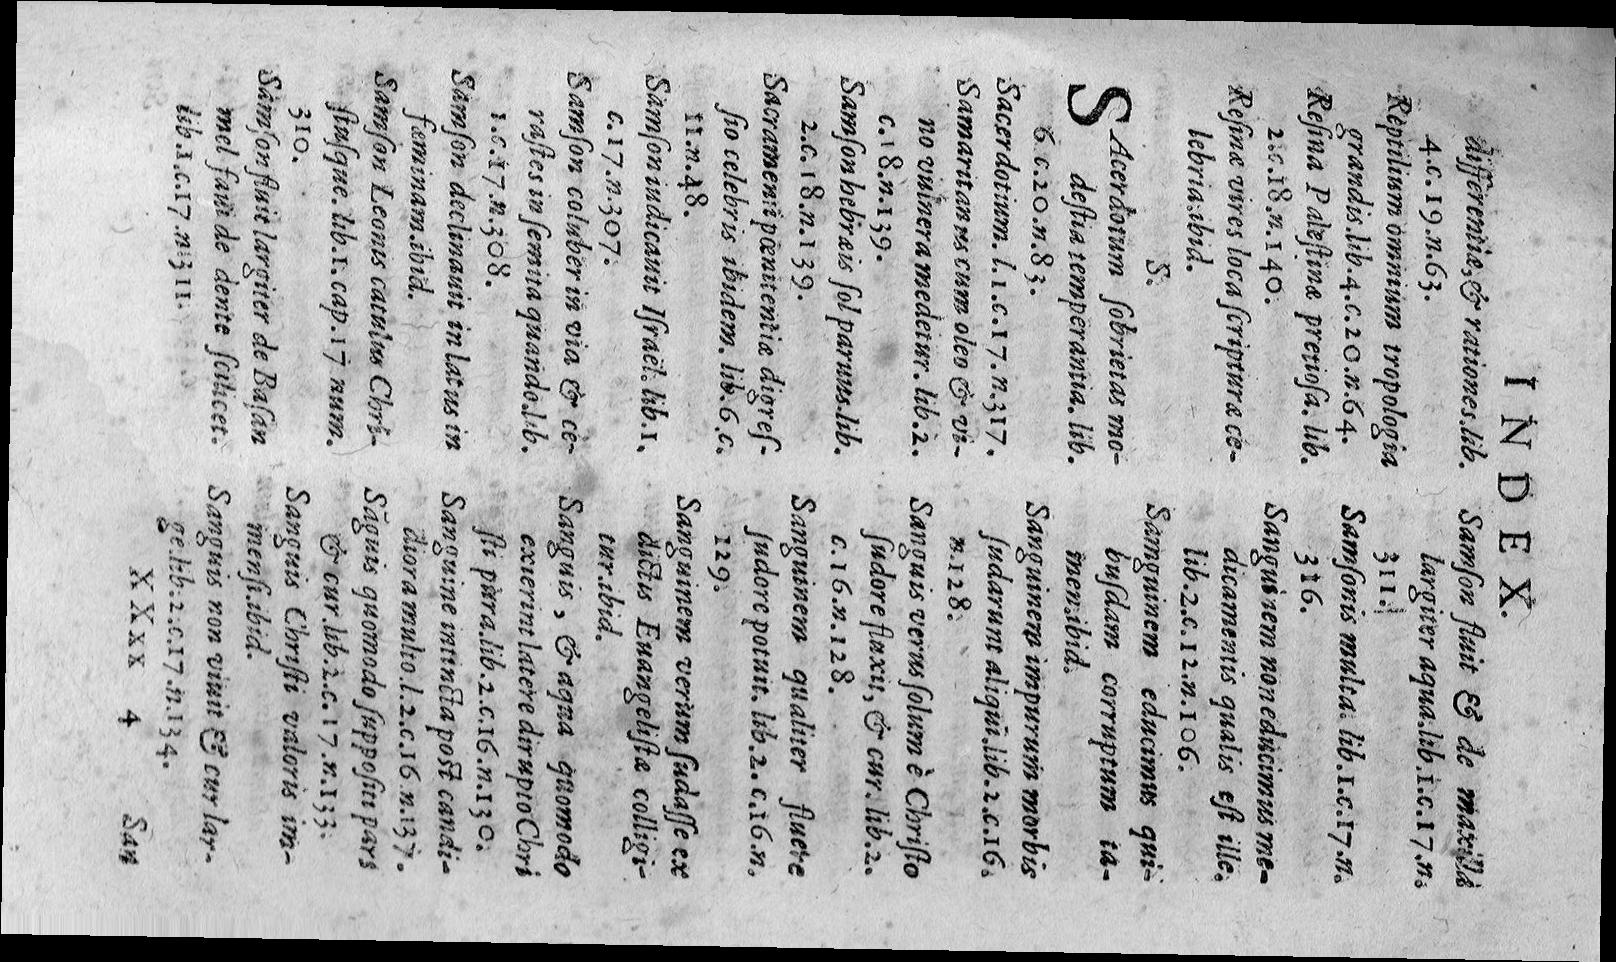 INDEX.
differentiæ, & rationes. lib.
4.c.19.n.63.
Reptilium omnium tropologia
grandis. lib.4.c.20.n.64.
Resina Palæstinæ pretiosa. lib.
2.c.18.n.140.
Resinæ vires loca scripturæ ce-
lebria. ibid.
S.
SAcerdotum sobrietas mo-
destia temperantia. lib.
6.c.20.n.83.
Sacerdotium. l.1.c.17.n.317.
Samaritanus cum oleo & vi-
no vulnera medetur. lib.2.
c.18.n.139.
Samson hebræis sol paruus. lib.
2.c.18.n.139.
Sacramenti pœnitentiæ digres-
sio celebris ibidem. lib.6.c.
11.n.48.
Samson iudicauit Israël. lib.1.
c.17.n.307.
Samson coluber in via & ce-
rastes in semita quando. lib.
1.c.17.n.308.
Samson declinauit in latus in
fæminam. ibid.
Samson Leonis catulus Chri-
stusque. lib.1.cap.17 num.
310.
Samson fluit largiter de Basan
mel faui de dente scilicet.
lib.1.c.17.n.311.
Samson fluit & de maxilla
largiter aqua. lib.1.c.17.n.
311.
Samsonis multa. lib.1.c.17.n.
316.
Sanguinem non educimus me-
dicamentis qualis est ille.
lib.2.c.12.n.106.
Sanguinem educimus qui-
busdam corruptum ta-
men. ibid.
Sanguinem impurum morbis
sudarunt aliqui. lib.2.c.16.
n.128.
Sanguis verus solum è Christo
sudore fluxit, & cur. lib.2.
c.16.n.128.
Sanguinem qualiter fluere
sudore potuit. lib.2.c.16.n.
129.
Sanguinem verum sudasse ex
dictis Euangelistæ colligi-
tur. ibid.
Sanguis, & aqua quomodo
exierint latere dirupto Chri
sti para. lib.2.c.16.n.130.
Sanguine intincta post candi-
diora multo. l.2.c.16.n.137.
Sāguis quomodo suppositi pars
& cur. lib.2.c.17.n.133.
Sanguis Christi valoris im-
mensi. ibid.
Sanguis non viuit & cur lar-
ge. lib.2.c.17.n.134.
XXxx 4 San